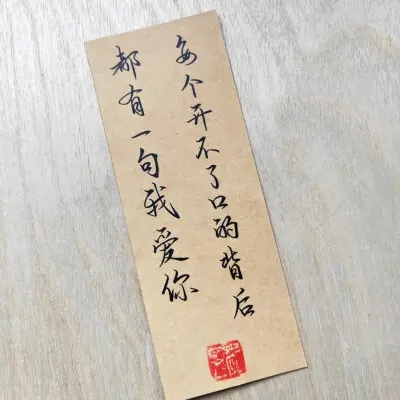 每个开不了口的背后
都有一句我爱你